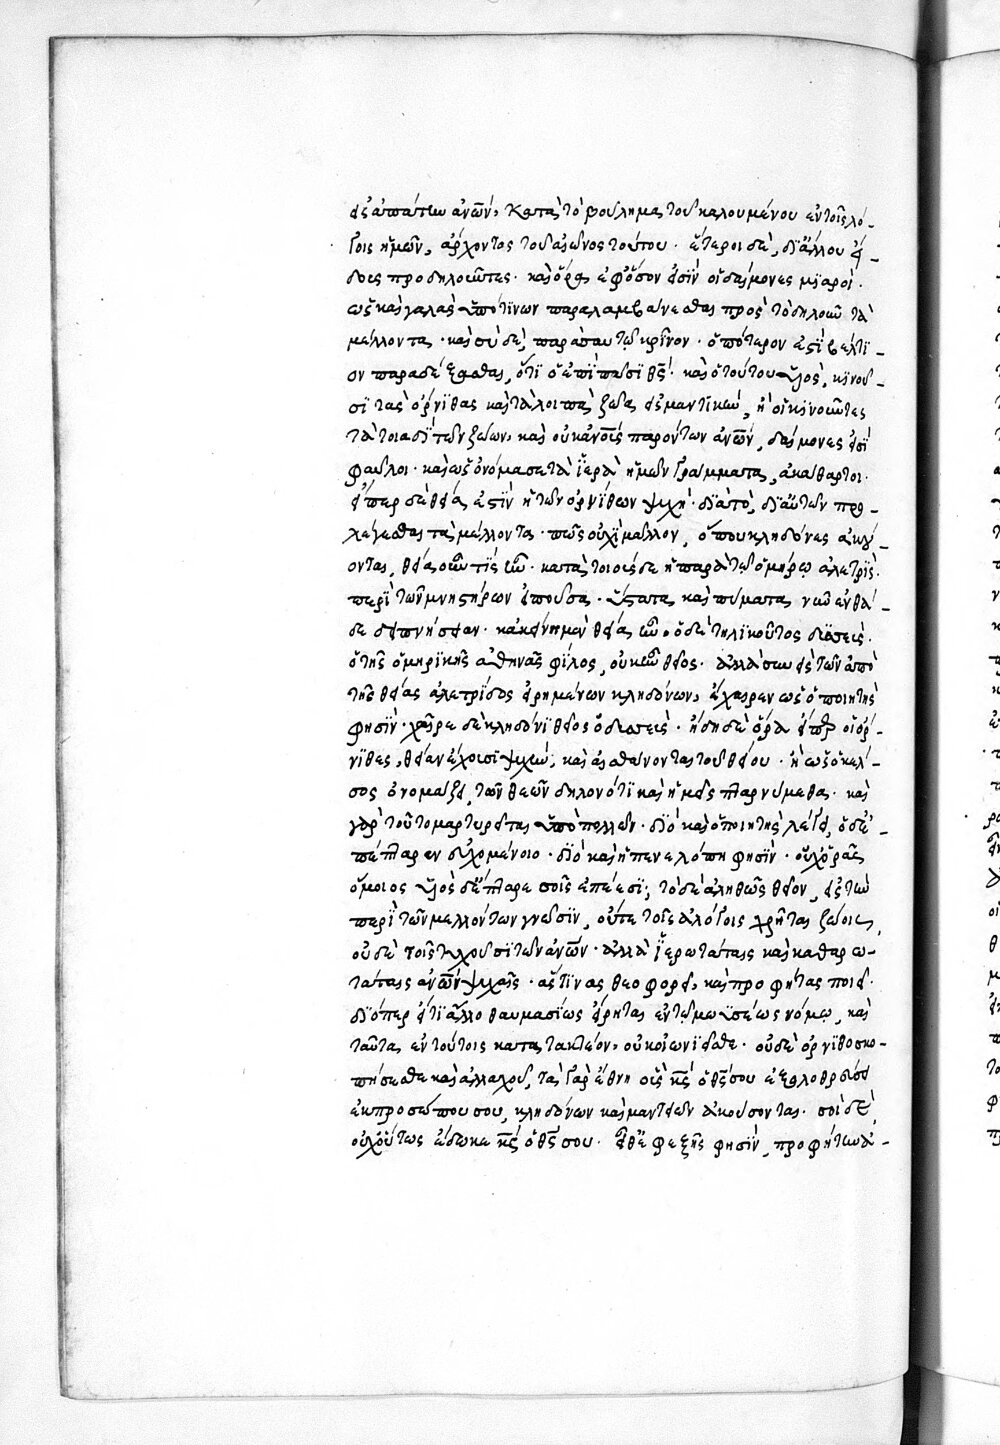 ἐξαπάτην ἀνῶν, κατὰ τὸ βούλημα τοῦ καλουμένου ἐν τοῖς λό-
γοις ἡμῶν, ἄρχοντος τοῦ αἰῶνος τούτου. ἕτεροι δὲ, δι ἄλλου εἴ-
δους προδηλοῦντες. καὶ ὅρα, ἐφ ὅσον εἰσὶν οἱ δαίμονες μιαροί.
ὡς καὶ γαλᾶς ὑπό τινων παραλαμβάνεσθαι πρὸς τὸ δηλοῦν τὰ
μέλλοντα. καὶ σὺ δὲ, παρὰ σαυτῷ κρῖνον. ὁπότερον ἐστὶ βέλτι-
ον παραδέξασθαι, ὅτι ὁ ἐπὶ πᾶσι θς. καὶ ὁ τούτου υἱὸς, κινοῦ-
σι τὰς ὄρνιθας καὶ τὰ λοιπὰ ζῶα εἰς μαντικὴν, ἢ οἱ κινοῦντες
τὰ τοιαδὶ τῶν ζώων, καὶ οὐκ ἀνοῖς παρόντων ἀνῶν, δαίμονες εἰσὶ
φαῦλοι. καὶ ὡς ὀνόμασε τὰ ἱερὰ ἡμῶν γράμματα, ἀκάθαρτοι.
εἴπερ δὲ θεία ἐστὶν ἡ τῶν ὀρνίθων ψυχὴ. διὰ τὸ, δι αὐτῶν προ-
λέγεσθαι τὰ μέλλοντα. πῶς οὐχὶ μᾶλλον, ὅπου κληδόνες ἀκού-
ονται, θεία οὖν τίς ἦν. κατὰ τοιοῦσδε ἡ παρὰ τῷ ὁμήρῳ ἀλετρὶς.
περὶ τῶν μνηστήρων εἰποῦσα. ὕστατα καὶ πύματα νῦν ἐνθά-
δε δειπνήσειαν. κἀκείνη μὲν θεία ἦν. ὁ δὲ τηλικοῦτος ὀδυσσεὺς.
ὁ τῆς ὁμηρικῆς ἀθηνᾶς φίλος, οὐκ ἦν θεῖος. ἀλλὰ συνεὶς τῶν ἀπὸ
τῆς θείας ἀλετρίδος εἰρημένων κληδόνων, ἔχαιρεν ὡς ὁ ποιητὴς
φησὶν. χαῖρε δὲ κληδόνι θεῖος ὀδυσσεὺς. ἤδη δὲ ὅρα εἴπερ οἱ ὄρ-
νιθες, θείαν ἔχουσι ψυχὴν, καὶ αἰσθάνονται τοῦ θεοῦ. ἢ ὡς ὁ κέλ-
σος ὀνομάζει, τῶν θεῶν δηλονότι καὶ ἡμεῖς πταρνύμεθα. καὶ
γὰρ τοῦτο μαρτυρεῖται ὑπὸ πολλῶν. διὸ καὶ ὁ ποιητὴς λέγει, ὁ δ ἐ-
πέπταρεν εὐχομένοιο. διὸ καὶ ἡ πενελόπη φησὶν. οὐχ ὁράᾳς
ὅμοιος υἱὸς δ ἔπταρε σοῖς ἐπέεσι; τὸ δὲ ἀληθῶς θεῖον, εἰς τὴν
περὶ τῶν μελλόντων γνῶσιν, οὔτε τοῖς ἀλόγοις χρῆται ζώοις,
οὐδὲ τοῖς τυχοῦσι τῶν ἀνῶν. ἀλλὰ ἱερωτάταις καὶ καθαρω-
τάταις ἀνῶν ψυχαῖς. ἅς τινας θεοφορεῖ, καὶ προφήτας ποιεῖ.
διόπερ εἴ τι ἄλλο θαυμασίως εἴρηται ἐν τῷ μωϋσέως νόμῳ, καὶ
ταῦτα ἐν τούτοις κατατακτέον, οὐκ οἰωνιεῖσθε. οὐδὲ ὀρνιθοσκο-
πήσεσθε καὶ ἀλλαχοῦ, τὰ γὰρ ἔθνη οἷς κς ὁ θς σου ἐξολοθρεύσει
ἐκ προσώπου σου, κληδόνων καὶ μαντειῶν ἀκούσονται. σοὶ δὲ,
οὐχ οὕτως ἔδωκε κς ὁ θς σου. εἶθ ἑξῆς φησὶν, προφήτην ἀ-